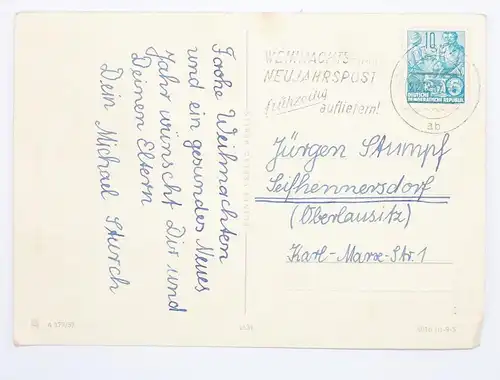 Frohe Weihnachten
und ein gesundes Neues
Jahr wünscht Dir und
Deinen Eltern
Dein Michael Sturch
WEIHNACHTS-
NEUJAHRSPOST
frühzeitig
aufliefern!
10
DEUTSCHE
DEMOKRATISCHE REPUBLIK
ab
Jürgen Stumpf
Seifhennersdorf
(Oberlausitz)
Karl-Marx-Str. 1